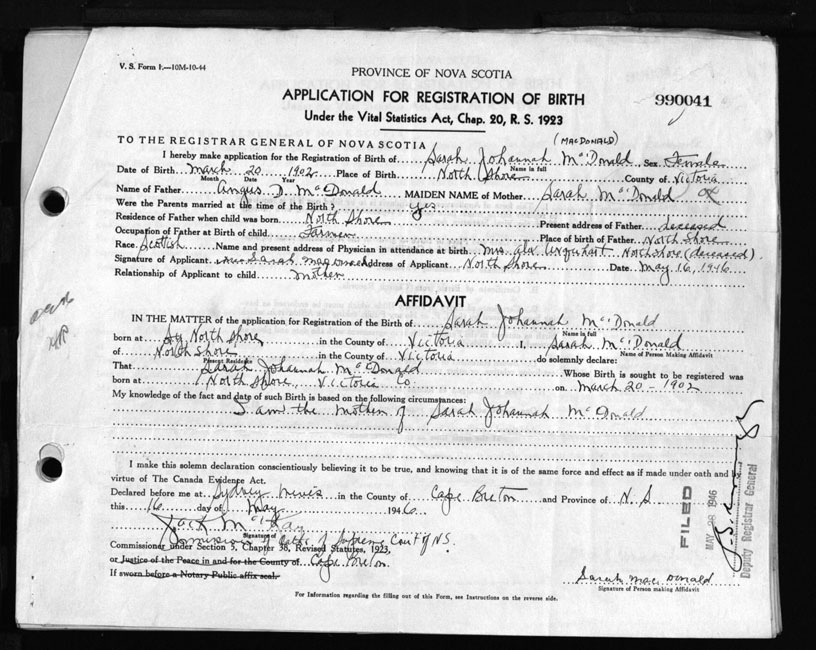 V. S. Form 1.—10M-10-44
PROVINCE OF NOVA SCOTIA
APPLICATION FOR REGISTRATION OF BIRTH
990041
Under the Vital Statistics Act, Chap. 20, R. S. 1923
TO THE REGISTRAR GENERAL OF NOVA SCOTIA
(MACDONALD)
I hereby make application for the Registration of Birth of Sarah Johannah McDonald Sex Female
Name in full
Date of Birth March 20 1902 Place of Birth North Shore County of Victoria
Month Date Year
Name of Father Angus D. McDonald MAIDEN NAME of Mother Sarah McDonald
Were the Parents married at the time of the Birth? yes
Residence of Father when child was born North Shore Present address of Father deceased
Occupation of Father at Birth of child Farmer Place of birth of Father North Shore
Race Scottish Name and present address of Physician in attendance at birth Mrs. Urquhart North Shore (deceased).
Signature of Applicant Sarah MacDonald Address of Applicant North Shore Date May 16, 1946
Relationship of Applicant to child mother
AFFIDAVIT
IN THE MATTER of the application for Registration of the Birth of Sarah Johannah McDonald
Name in full
born at North Shore in the County of Victoria I, Sarah McDonald
Name of Person Making Affidavit
of North Shore in the County of Victoria do solemnly declare:
Present Residence
That Sarah Johannah McDonald Whose Birth is sought to be registered was
born at North Shore, Victoria Co on March 20 - 1902
My knowledge of the fact and date of such Birth is based on the following circumstances:
I am the mother of Sarah Johannah McDonald
I make this solemn declaration conscientiously believing it to be true, and knowing that it is of the same force and effect as if made under oath and by
virtue of The Canada Evidence Act.
Declared before me at Sydney Mines in the County of Cape Breton and Province of N. S
this 16 day of May 1946
Jack McKay
Signature of
Commissioner of Oaths of Supreme Court of N.S.
Commissioner under Section 5, Chapter 38, Revised Statutes, 1923,
or Justice of the Peace in and for the County of Cape Breton
If sworn before a Notary Public affix seal.
Sarah MacDonald
Signature of Person making Affidavit
FILED
MAY 28 1946
Deputy Registrar General
For Information regarding the filling out of this Form, see Instructions on the reverse side.